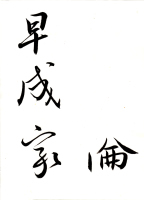 倫
早成家